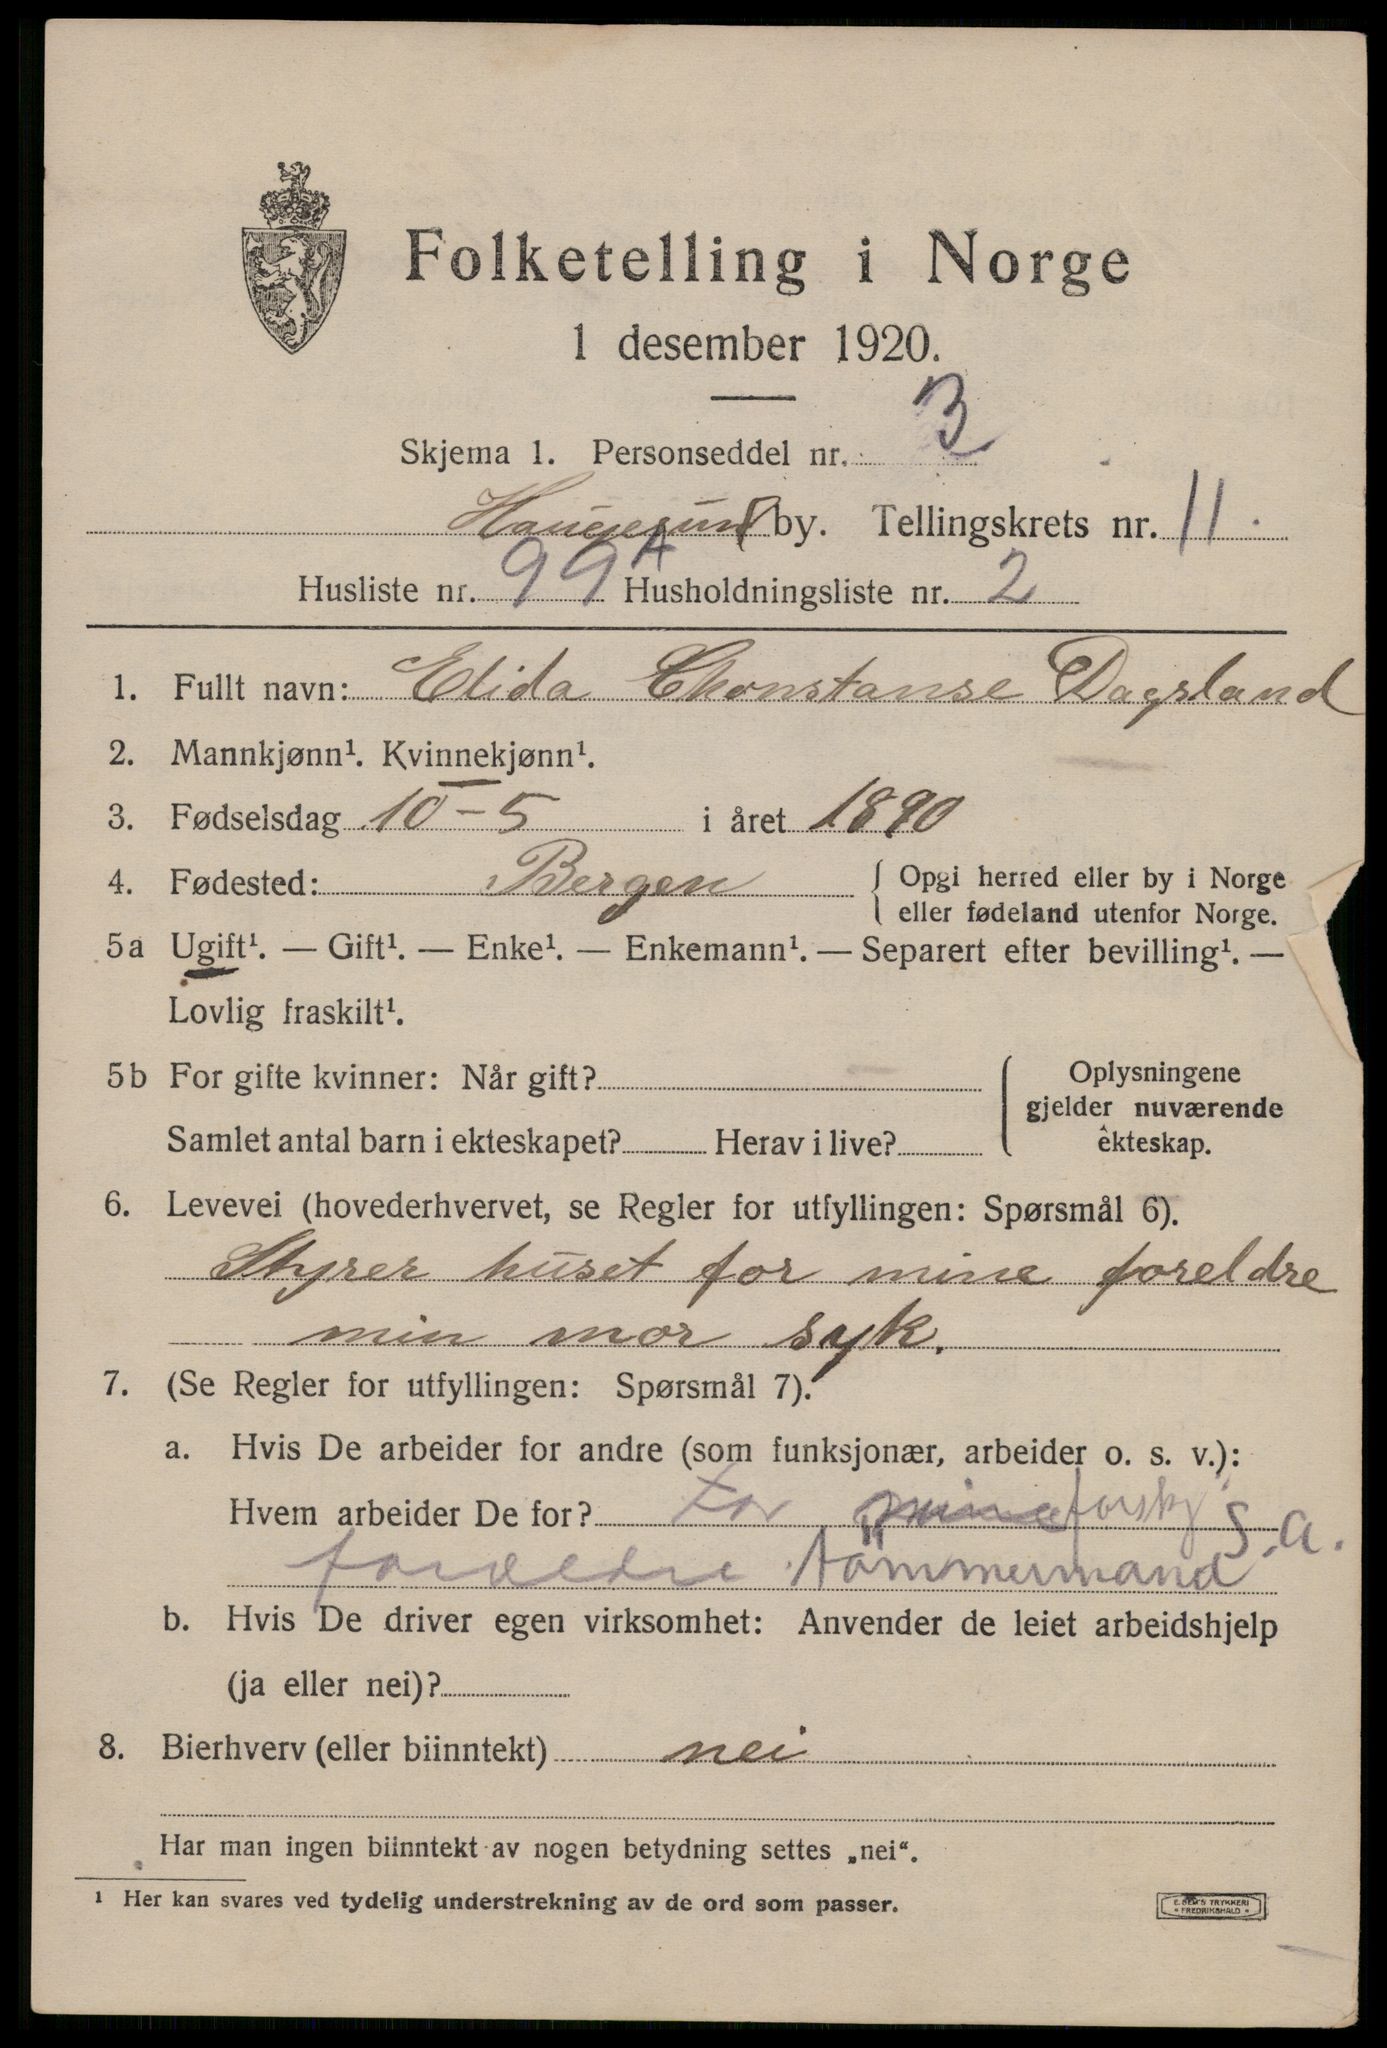 Folketelling i Norge
1 desember 1920.
Skjema 1. Personseddel nr. 3
Haugesund by. Tellingskrets nr. 11.
Husliste nr. 99 A Husholdningsliste nr. 2
1. Fullt navn: Elida Chonstanse Dagsland
2. Mannkjønn¹. Kvinnekjønn¹.
3. Fødselsdag 10-5 i året 1890
4. Fødested: Bergen { Opgi herred eller by i Norge
eller fødeland utenfor Norge.
5a Ugift¹. — Gift¹. — Enke¹. — Enkemann¹. — Separert efter bevilling¹. —
Lovlig fraskilt¹.
5b For gifte kvinner: Når gift? { Oplysningene
gjelder nuværende
Samlet antal barn i ekteskapet? Herav i live? ekteskap.
6. Levevei (hovederhvervet, se Regler for utfyllingen: Spørsmål 6).
Styrer huset for mine foreldre
min mor syk.
7. (Se Regler for utfyllingen: Spørsmål 7).
a. Hvis De arbeider for andre (som funksjonær, arbeider o. s. v.):
Hvem arbeider De for? For mine forsky S.a.
foreldre tömmermand
b. Hvis De driver egen virksomhet: Anvender de leiet arbeidshjelp
(ja eller nei)?
8. Bierhverv (eller biinntekt) nei
Har man ingen biinntekt av nogen betydning settes „nei“.
¹ Her kan svares ved tydelig understrekning av de ord som passer.
E. SEM'S TRYKKERI
FREDRIKSHALD